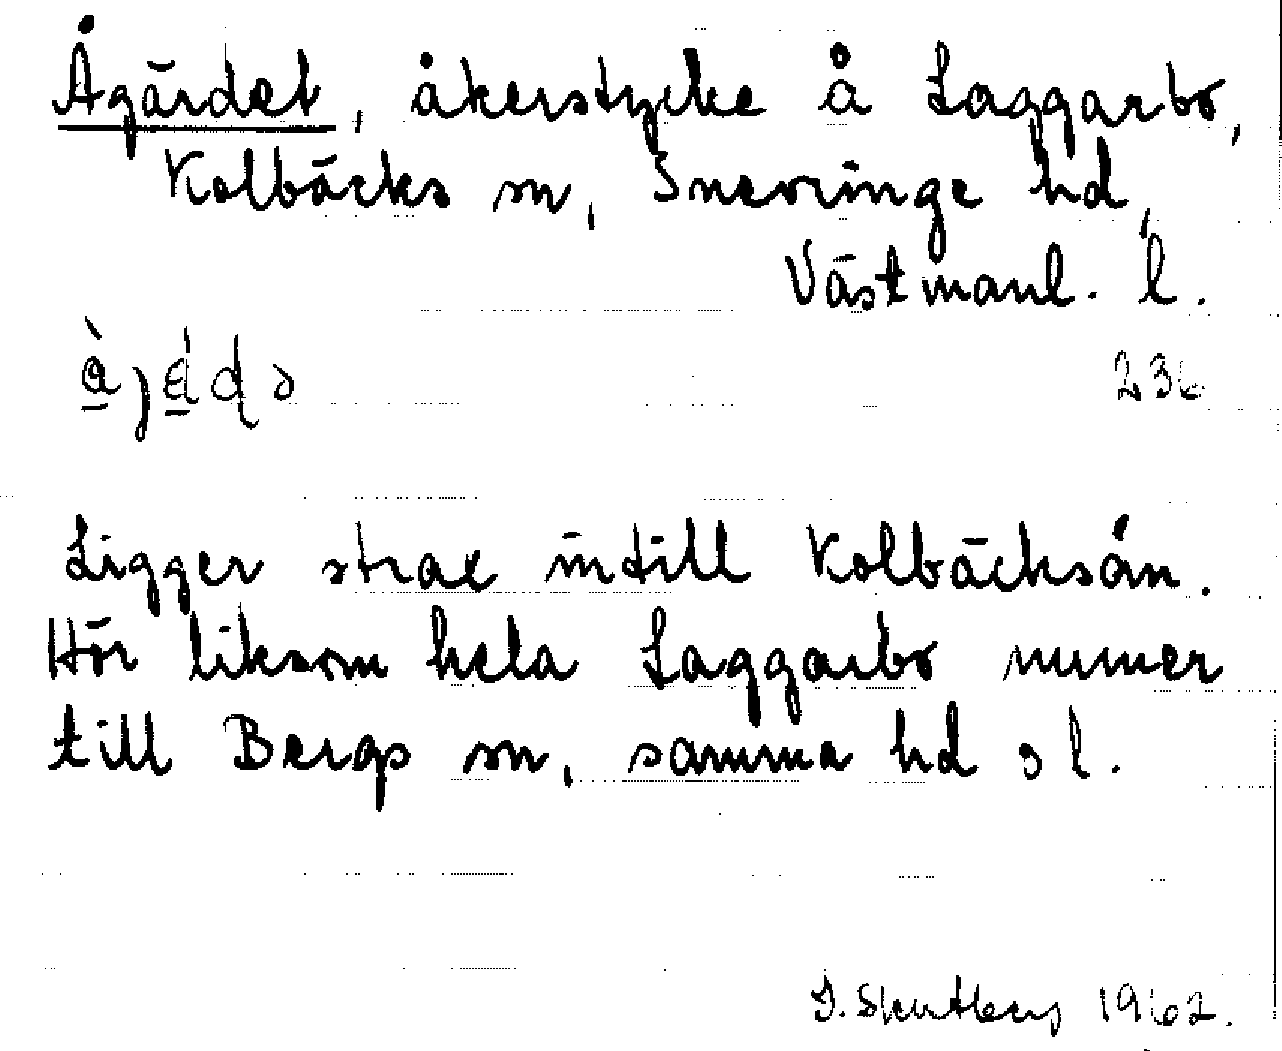 Ågärdet, åkerstycke å Laggarbo,
Kolbäcks sn, Snevringe hd,
Västmanl. l.
236
Ligger strax intill Kolbäcksån.
Hör liksom hela Laggarbo numer
till Bergs sn, samma hd o l.
1962.